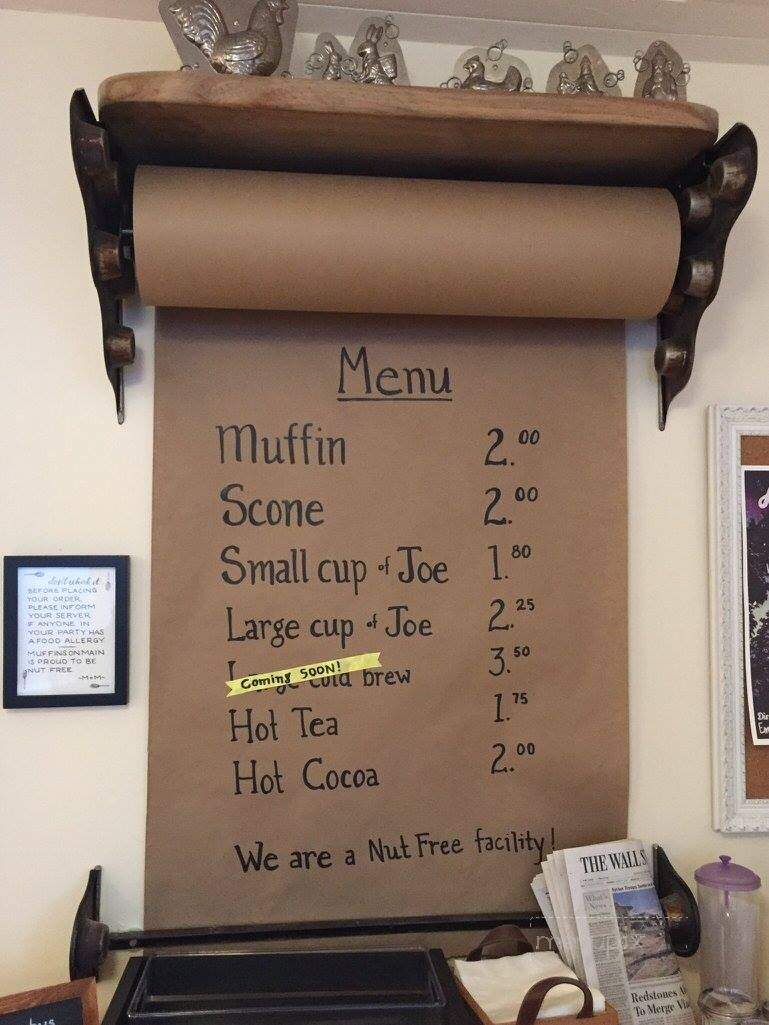 Menu
Muffin 2.00
Scone 2.00
Small cup of Joe 1.80
Large cup of Joe 2.25
Coming SOON!
Large cold brew 3.50
Hot Tea 1.75
Hot Cocoa 2.00
We are a Nut Free facility!
BEFORE PLACING
YOUR ORDER,
PLEASE INFORM
YOUR SERVER
IF ANYONE IN
YOUR PARTY HAS
A FOOD ALLERGY
MUFFINS ON MAIN
IS PROUD TO BE
NUT FREE
~M•M~
THE WALL S
What's
News
Redstones A
To Merge Vi